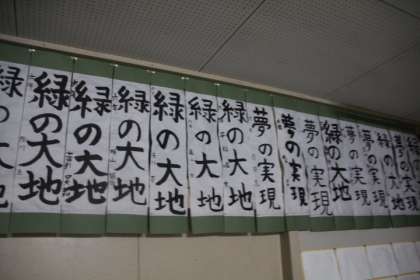 緑の大地
緑の大地
緑の大地
緑の大地
緑の大地
緑の大地
緑の大地
夢の実現
夢の実現
夢の実現
緑の大地
夢の実現
夢の実現
緑の大地
夢の実現